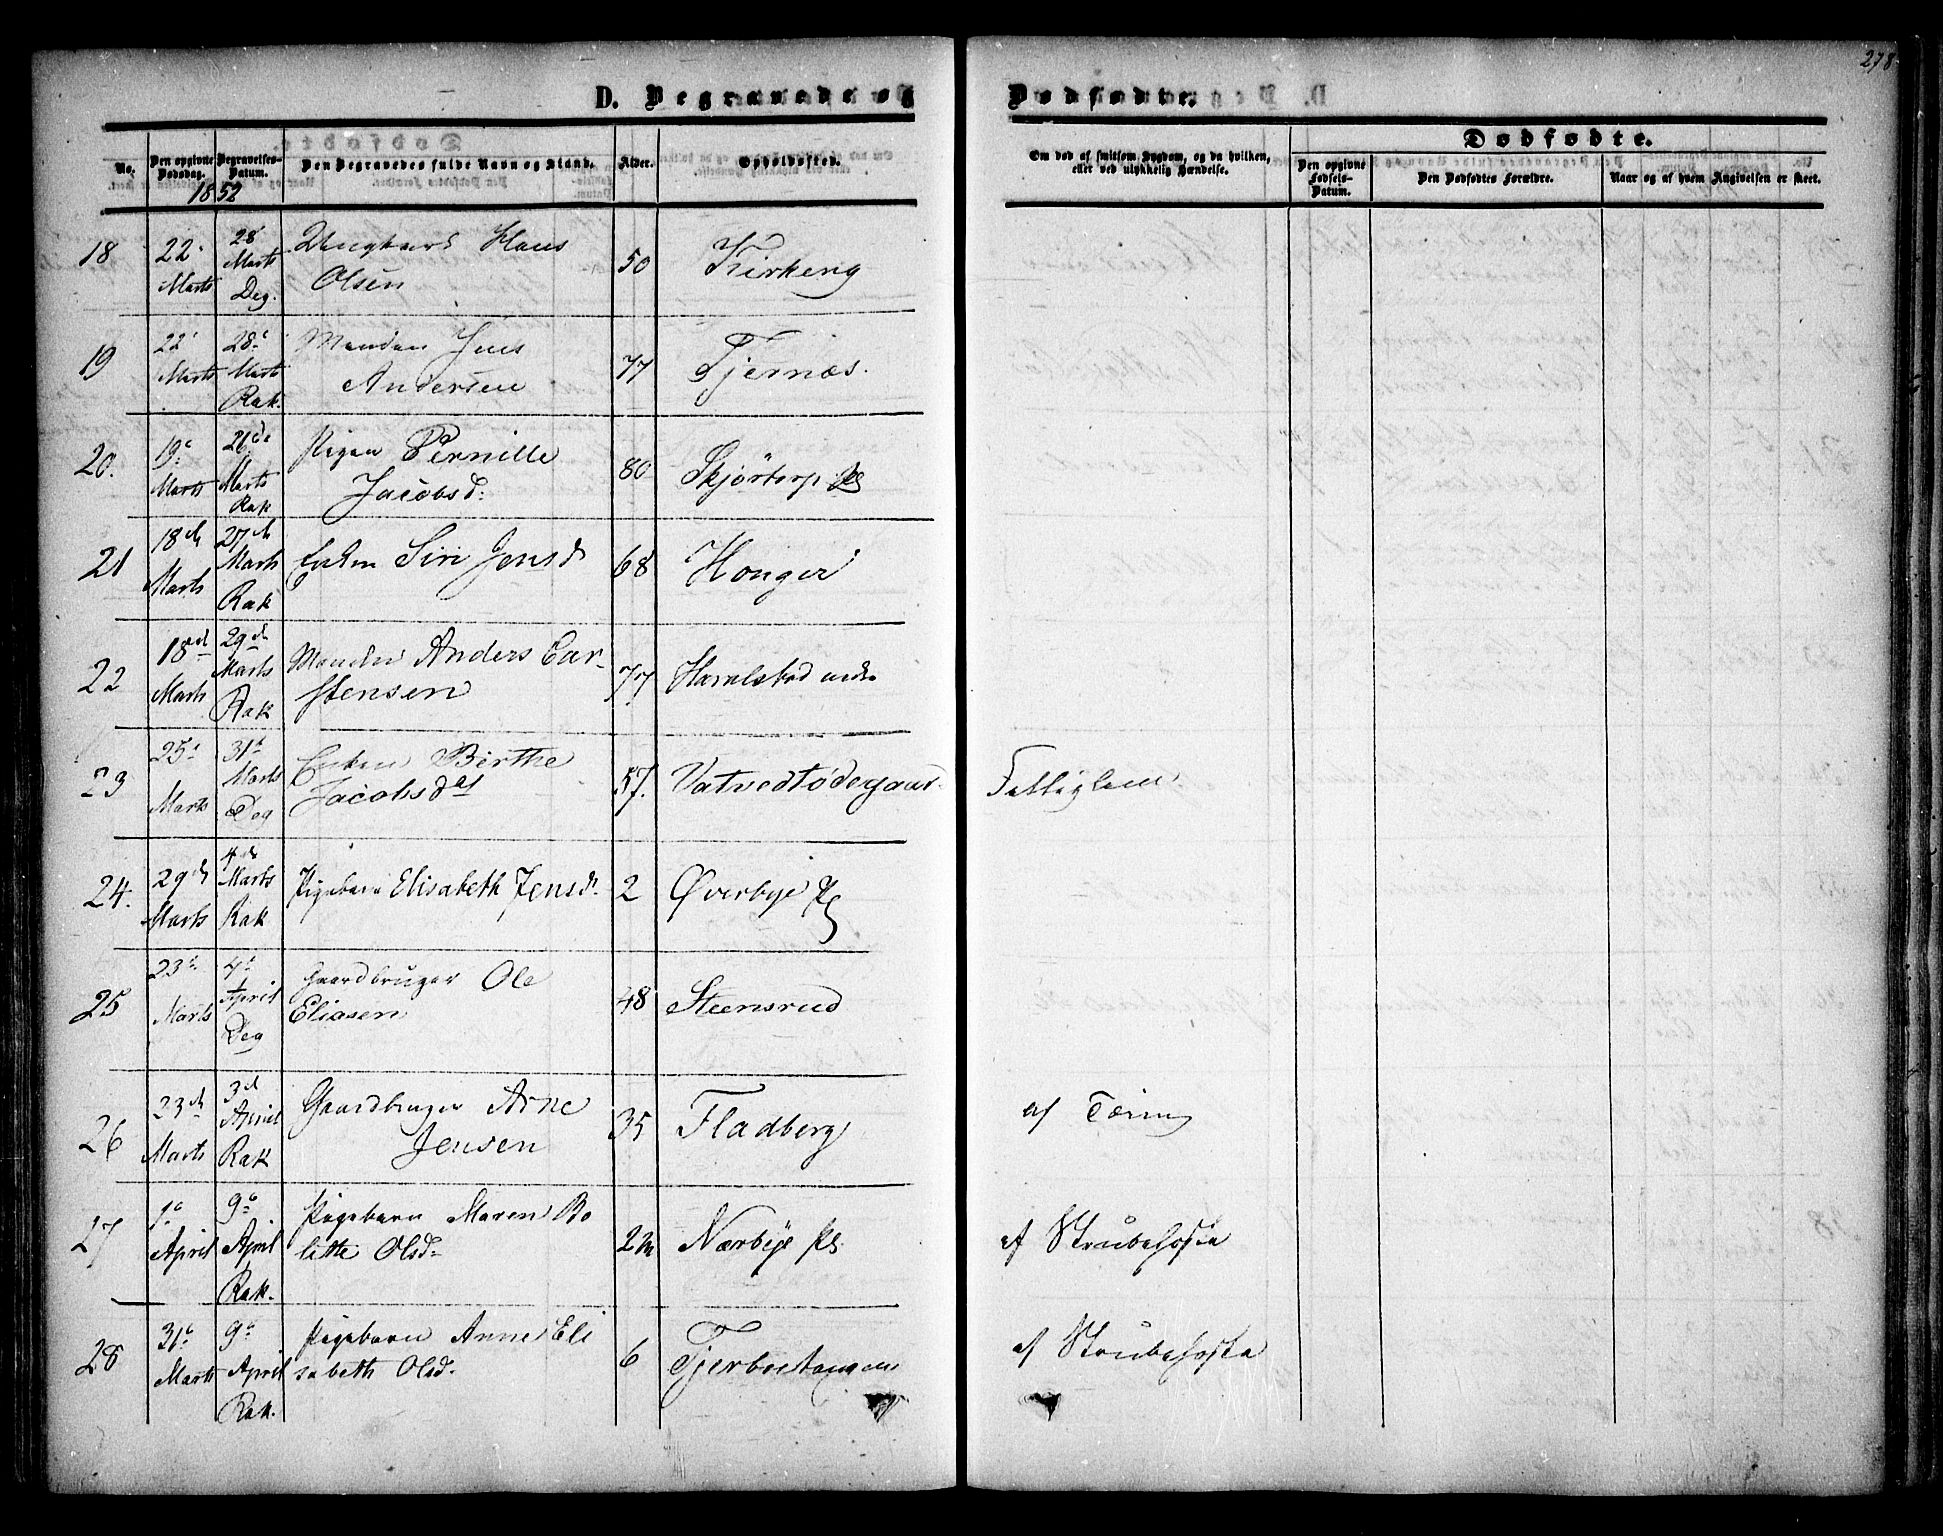 278
D. Begravede og Dødfødte.
Dødfødte.
No.
Den opgivne Dødsdag.
Begravelses-Datum.
Den Begravedes fulde Navn og Stand.
Alder.
Opholdssted.
Om død af smitsom Sygdom, og da hvilken, eller ved ulykkelig Hændelse.
Den opgivne Fødsels-Datum.
Den Dødfødtes Forældre.
Naar og af hvem Angivelsen er skeet.
1852
18 22 Marts 28 Marts Deg. Ungkarl Hans
Olsen 50 Kirkeng
19 22 Marts 28 Marts Rak. Manden Jens
Andersen 77 Tjernæs.
20. 19 Marts 26de Marts Rak Pigen Pernille
Jacobsd: 80 Skjörtorp Pl
21 18d Marts 27d Marts Rak Enken Siri Jensd 68
22 18d Marts 29d Marts Rak Manden Anders Car-
stensen 77 Haralstad nedre
23 25 Marts 31 Marts Deg Enken Birthe
Jacobsd 57. Vatvedtødegaard Fattiglem
24. 29d Marts 4d Marts Rak Pigebarn Elisabeth Jensd. 2 Øverbye Pl
25 23 Marts 4 April Deg Gaardbruger Ole
Eliasen 48 Steensrud
26 23d Marts 3d April Rak Gaardbruger Arne
Jensen 35 Fladberg af Tæring
27 1 April 9 April Rak. Pigebarn Maren Bo
lette Olsd 2 m Nærbye Pl. af Strubehoste
28 31 Marts 9 April Rak. Pigebarn Anne Eli
sabeth Olsd. 6 af Strubehoste